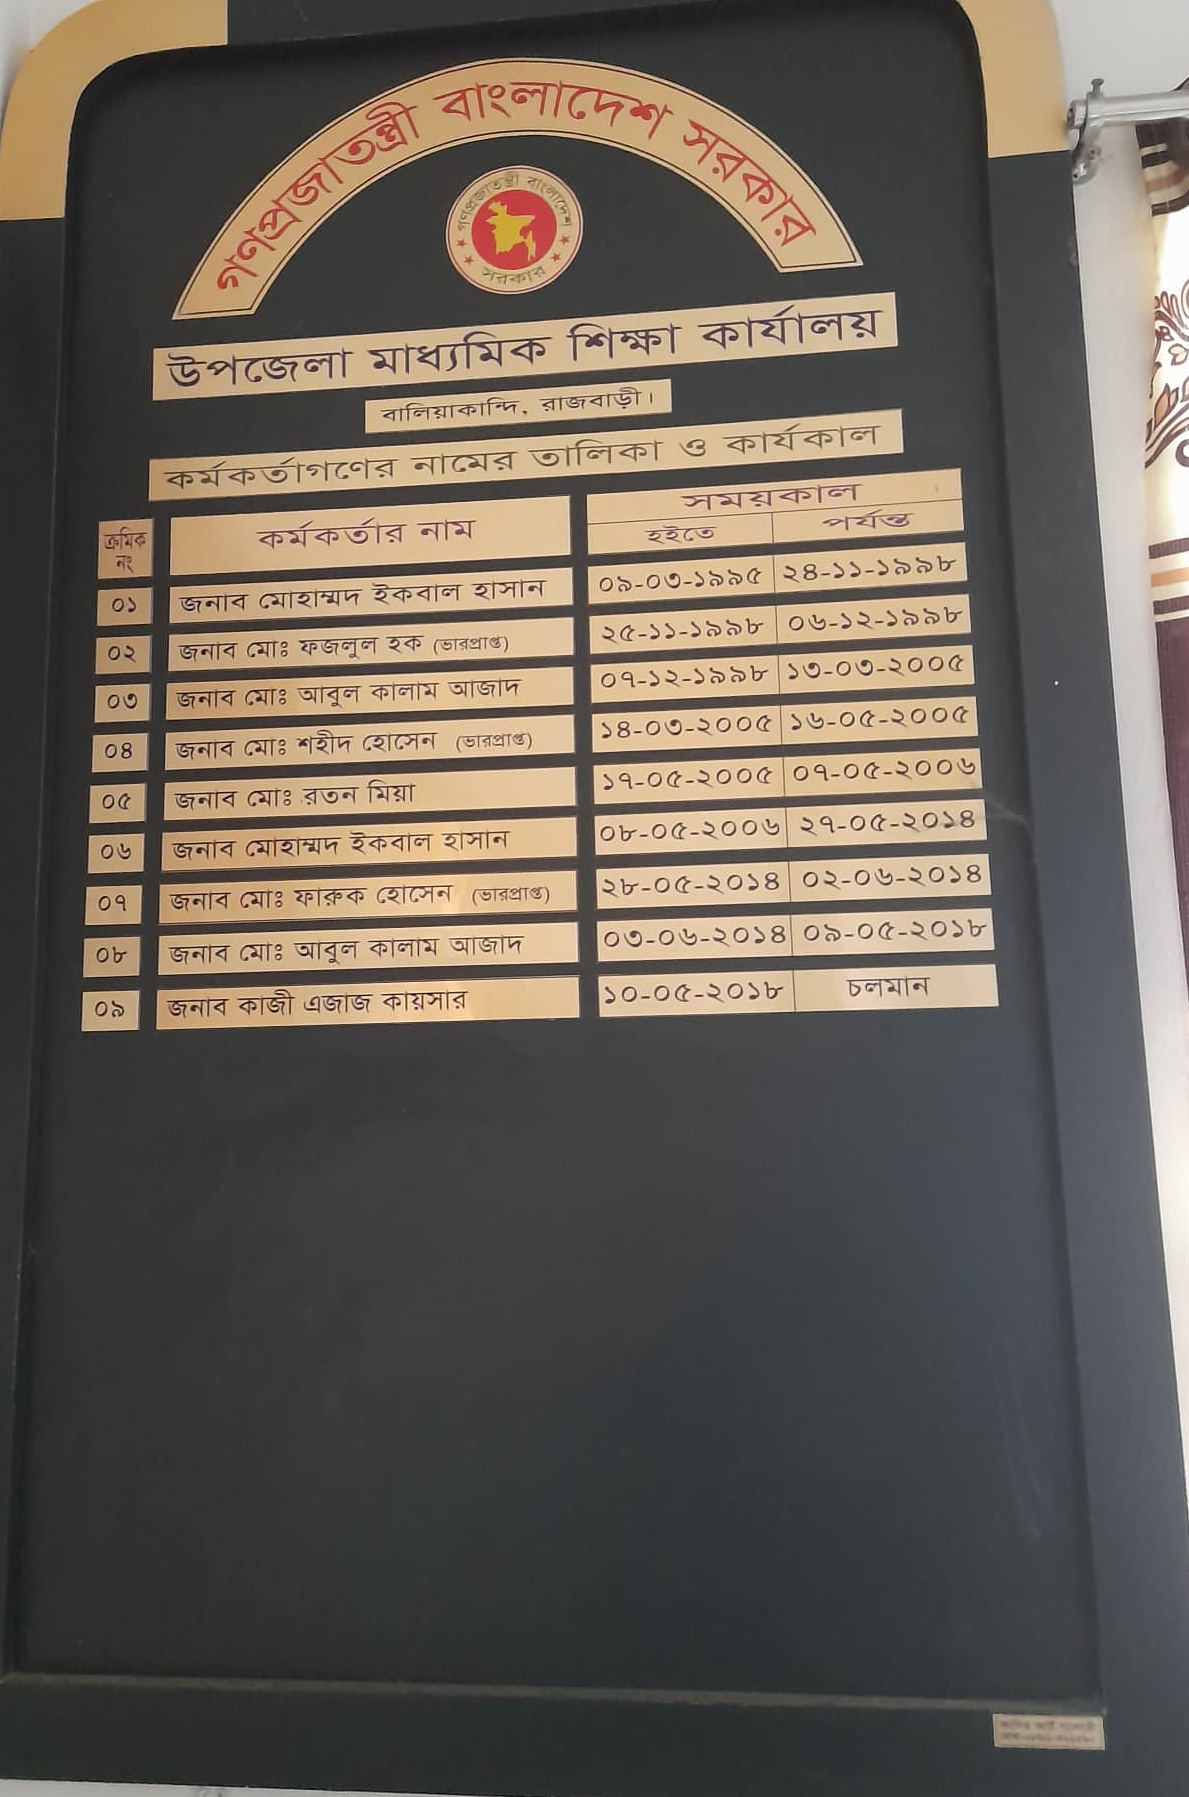 গণপ্রজাতন্ত্রী বাংলাদেশ সরকার
গণপ্রজাতন্ত্রী বাংলাদেশ
সরকার
উপজেলা মাধ্যমিক শিক্ষা কার্যালয়
বালিয়াকান্দি, রাজবাড়ী।
কর্মকর্তাগণের নামের তালিকা ও কার্যকাল
ক্রমিক নং কর্মকর্তার নাম সময়কাল
হইতে পর্যন্ত
০১ জনাব মোহাম্মদ ইকবাল হাসান ০৯-০৩-১৯৯৫ ২৪-১১-১৯৯৮
০২ জনাব মোঃ ফজলুল হক (ভারপ্রাপ্ত) ২৫-১১-১৯৯৮ ০৬-১২-১৯৯৮
০৩ জনাব মোঃ আবুল কালাম আজাদ ০৭-১২-১৯৯৮ ১৩-০৩-২০০৫
০৪ জনাব মোঃ শহীদ হোসেন (ভারপ্রাপ্ত) ১৪-০৩-২০০৫ ১৬-০৫-২০০৫
০৫ জনাব মোঃ রতন মিয়া ১৭-০৫-২০০৫ ০৭-০৫-২০০৬
০৬ জনাব মোহাম্মদ ইকবাল হাসান ০৮-০৫-২০০৬ ২৭-০৫-২০১৪
০৭ জনাব মোঃ ফারুক হোসেন (ভারপ্রাপ্ত) ২৮-০৫-২০১৪ ০২-০৬-২০১৪
০৮ জনাব মোঃ আবুল কালাম আজাদ ০৩-০৬-২০১৪ ০৯-০৫-২০১৮
০৯ জনাব কাজী এজাজ কায়সার ১০-০৫-২০১৮ চলমান